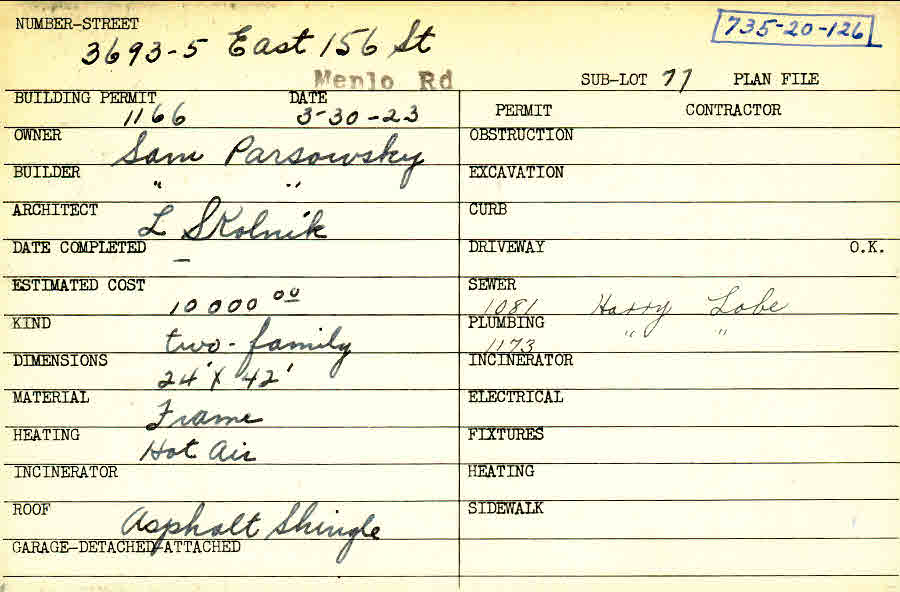 NUMBER-STREET
3693-5 East 156 St
735-20-126
Menlo Rd
SUB-LOT 77 PLAN FILE
BUILDING PERMIT DATE
1166 3-30-23
PERMIT CONTRACTOR
OWNER
Sam Parsowsky
OBSTRUCTION
BUILDER
" "
EXCAVATION
ARCHITECT
L Skolnik
CURB
DATE COMPLETED
-
DRIVEWAY O.K.
ESTIMATED COST
10 000 00
SEWER
1081 Harry Lobe
KIND
two-family
PLUMBING
1173 " "
DIMENSIONS
24' X 42'
INCINERATOR
MATERIAL
Frame
ELECTRICAL
HEATING
Hot Air
FIXTURES
INCINERATOR
HEATING
ROOF
Asphalt Shingle
SIDEWALK
GARAGE-DETACHED-ATTACHED